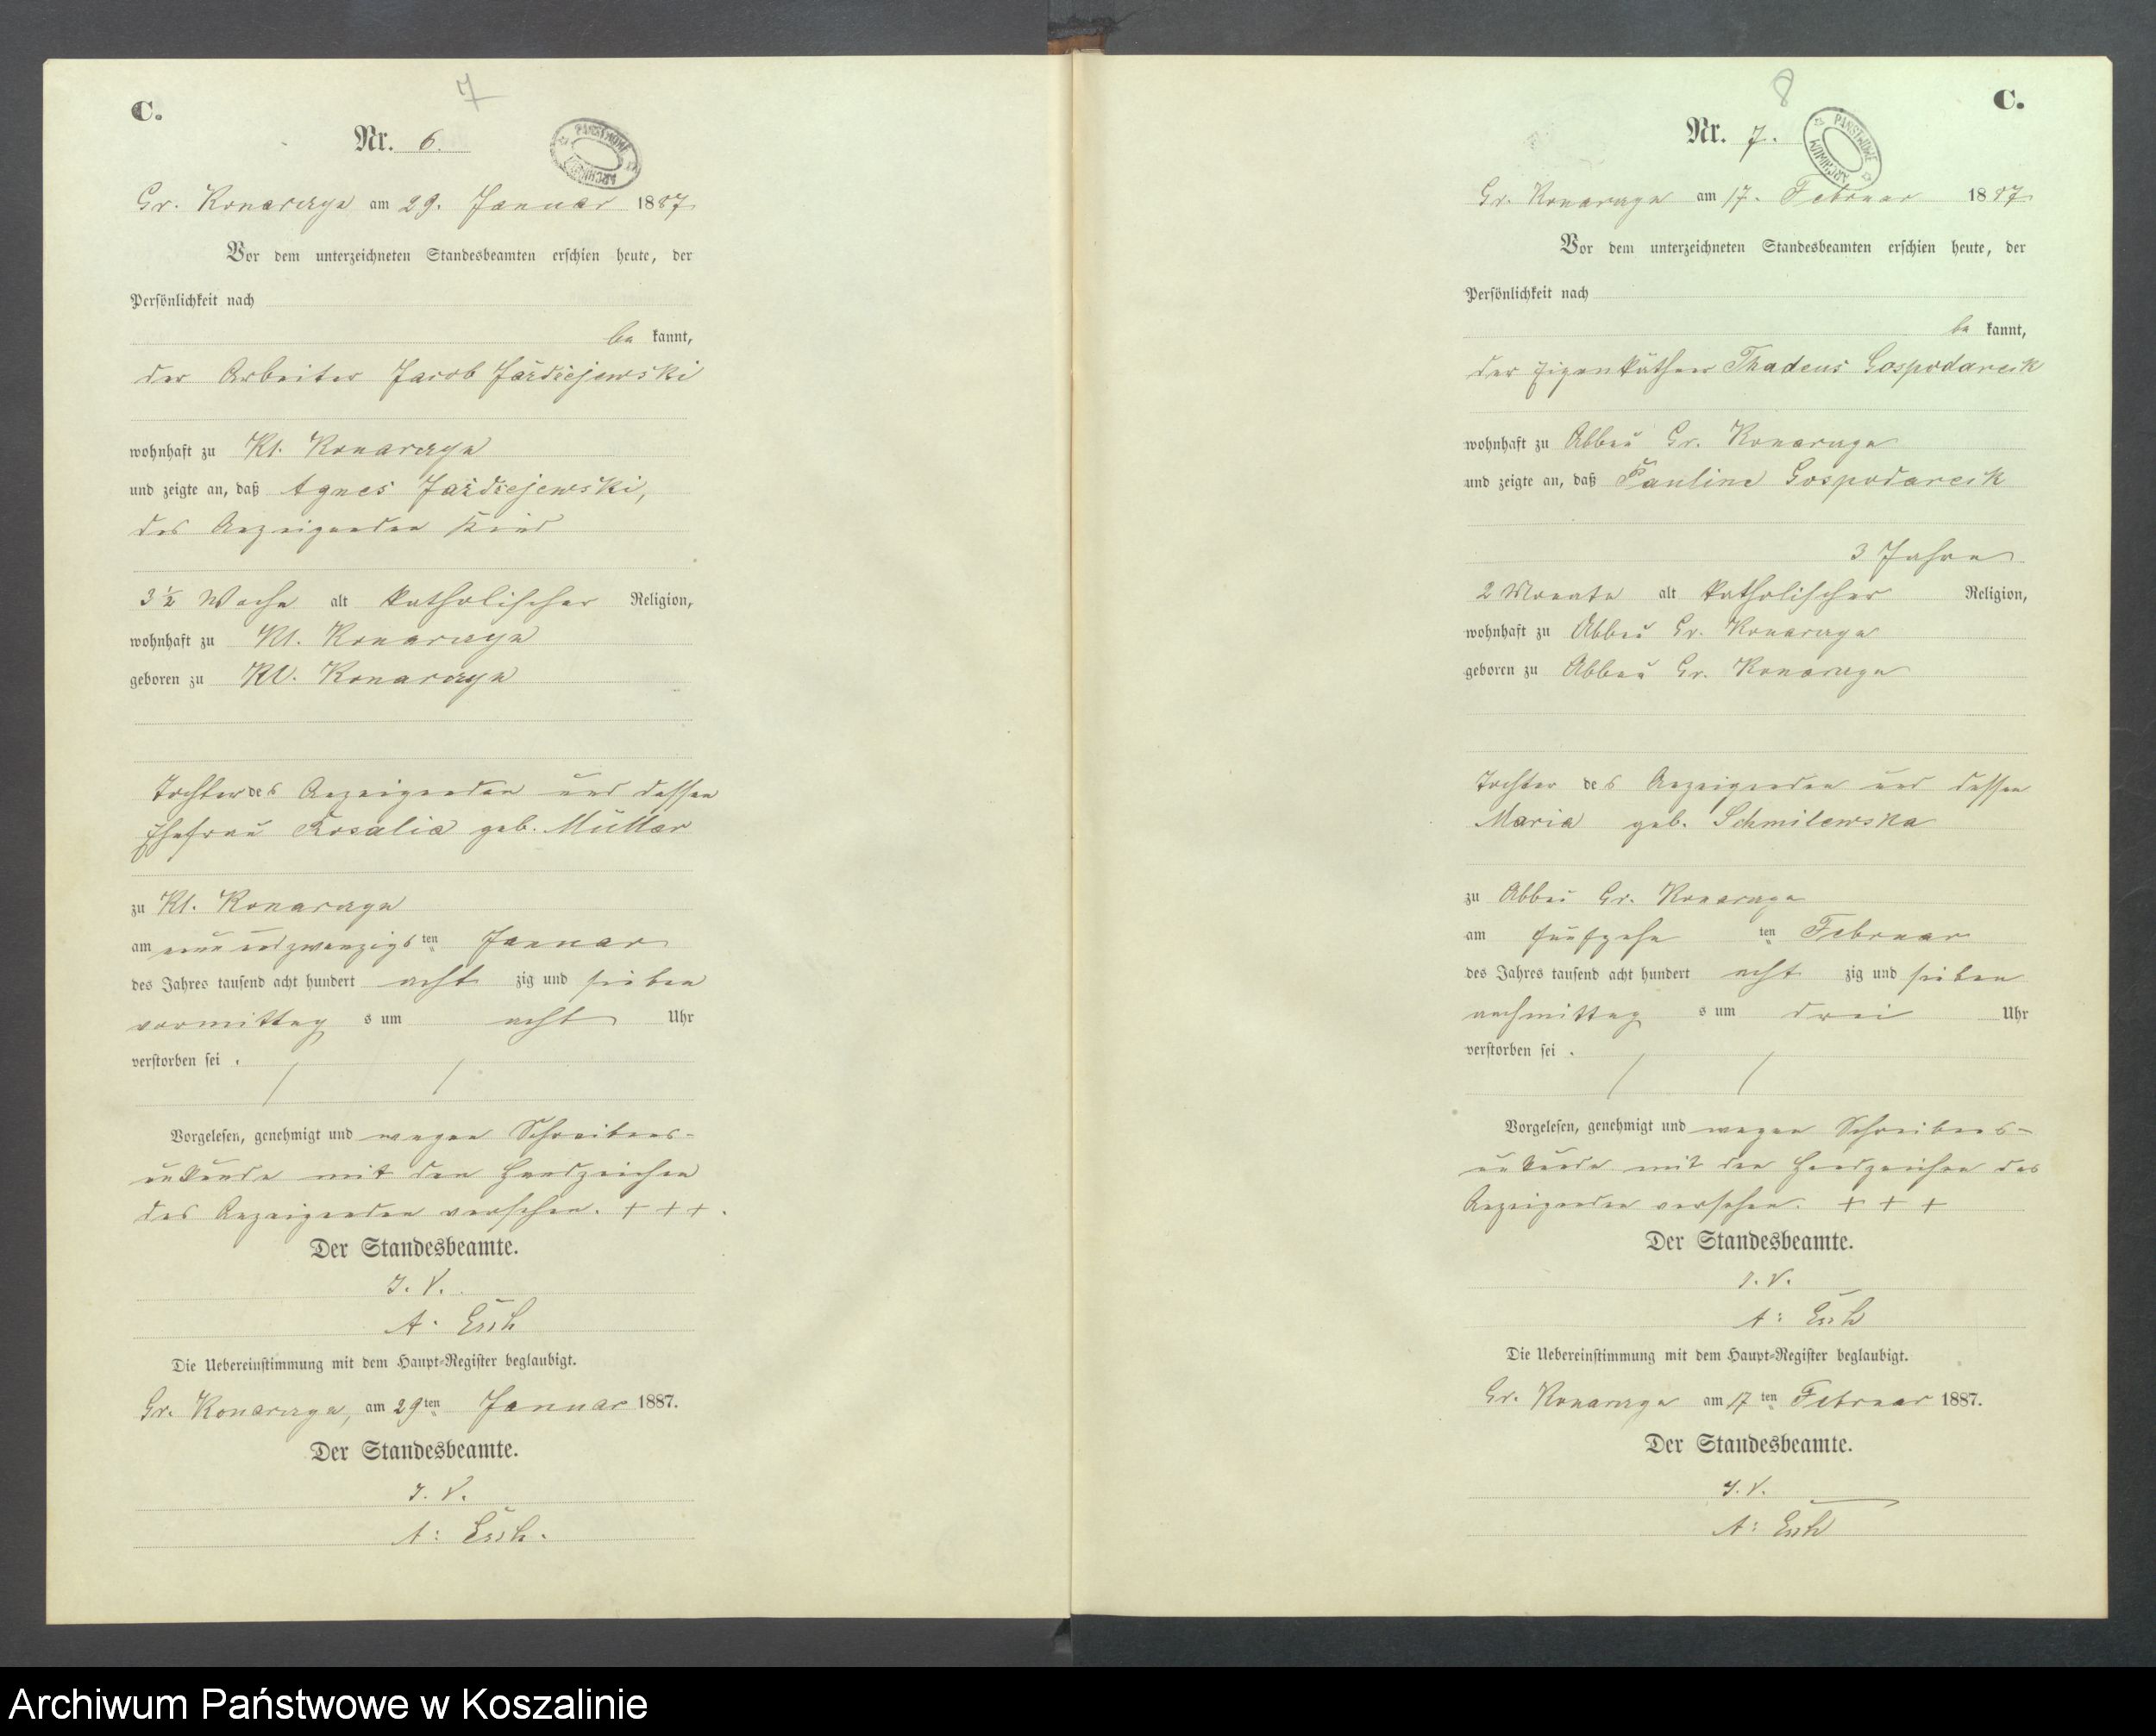 7
C.
Nr. 6.
PAŃSTWOWE ARCHIWUM
Gr. Konarczyn am 29. Januar 1887
Vor dem unterzeichneten Standesbeamten erschien heute, der
Persönlichkeit nach
be kannt,
der Arbeiter Jacob Jażdżejewski
wohnhaft zu Kl. Konarczyn
und zeigte an, daß Agnes Jażdżejewski,
des Anzeigenden Kind
3 ½ Woche alt katholischer Religion,
wohnhaft zu Kl. Konarczyn
geboren zu Kl. Konarczyn
Tochter des Anzeigenden und dessen
Ehefrau Rosalia geb. Müller
zu Kl. Konarczyn
am neun und zwanzigsten Januar
des Jahres tausend acht hundert acht zig und sieben
vormittag s um acht Uhr
verstorben sei.
Vorgelesen, genehmigt und wegen Schreibens-
unkunde mit den Handzeichen
des Anzeigenden versehen. + + +.
Der Standesbeamte.
I. V.
A. Esch
Die Uebereinstimmung mit dem Haupt-Register beglaubigt.
Gr. Konarczyn, am 29ten Januar 1887.
Der Standesbeamte.
I. V.
A: Esch.
8
C.
Nr. 7.
PAŃSTWOWE ARCHIWUM
Gr. Konarczyn am 17. Februar 1887
Vor dem unterzeichneten Standesbeamten erschien heute, der
Persönlichkeit nach
be kannt,
der Eigenkäthner Thadeus Gospodarcik
wohnhaft zu Abbau Gr. Konarczyn
und zeigte an, daß Pauline Gospodarcik
3 Jahre
2 Monate alt katholischer Religion,
wohnhaft zu Abbau Gr. Konarczyn
geboren zu Abbau Gr. Konarczyn
Tochter des Anzeigenden und dessen
Maria geb. Schmilewska
zu Abbau Gr. Konarczyn
am fünfzehn ten Februar
des Jahres tausend acht hundert acht zig und sieben
nachmittag s um drei Uhr
verstorben sei.
Vorgelesen, genehmigt und wegen Schreibens-
unkunde mit den Handzeichen des
Anzeigenden versehen. + + +
Der Standesbeamte.
I. V.
A: Esch
Die Uebereinstimmung mit dem Haupt-Register beglaubigt.
Gr. Konarczyn am 17ten Februar 1887.
Der Standesbeamte.
I. V.
A: Esch
Archiwum Państwowe w Koszalinie